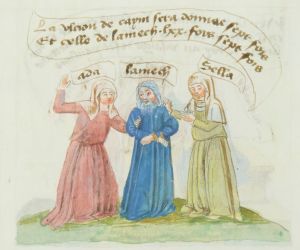 La vltion de cayin sera donnee sept fois
Et celle de lamech lxx fois sept fois
ada
lamech
Sella